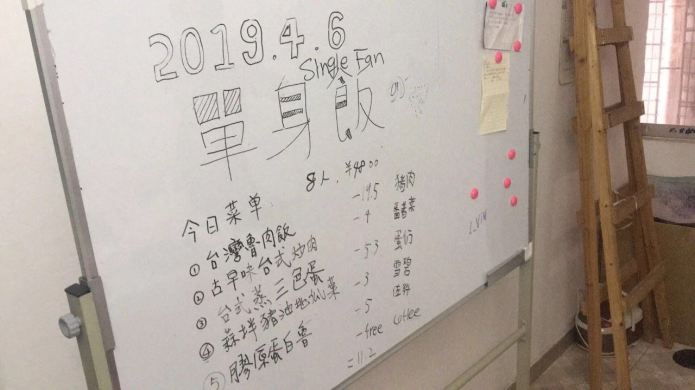 2019.4.6
Single Fan
單身飯
8人. ¥48.00
今日菜单
① 台灣魯肉飯
② 古早味台式炒肉
③ 台式蒸三色蛋
④ 蒜拌豬油地瓜菜
⑤ 膠原蛋白魯
-19.5 猪肉
-4 番薯菜
-5.3 蛋仔
-3 雪碧
-5
-free coffee
=11.2